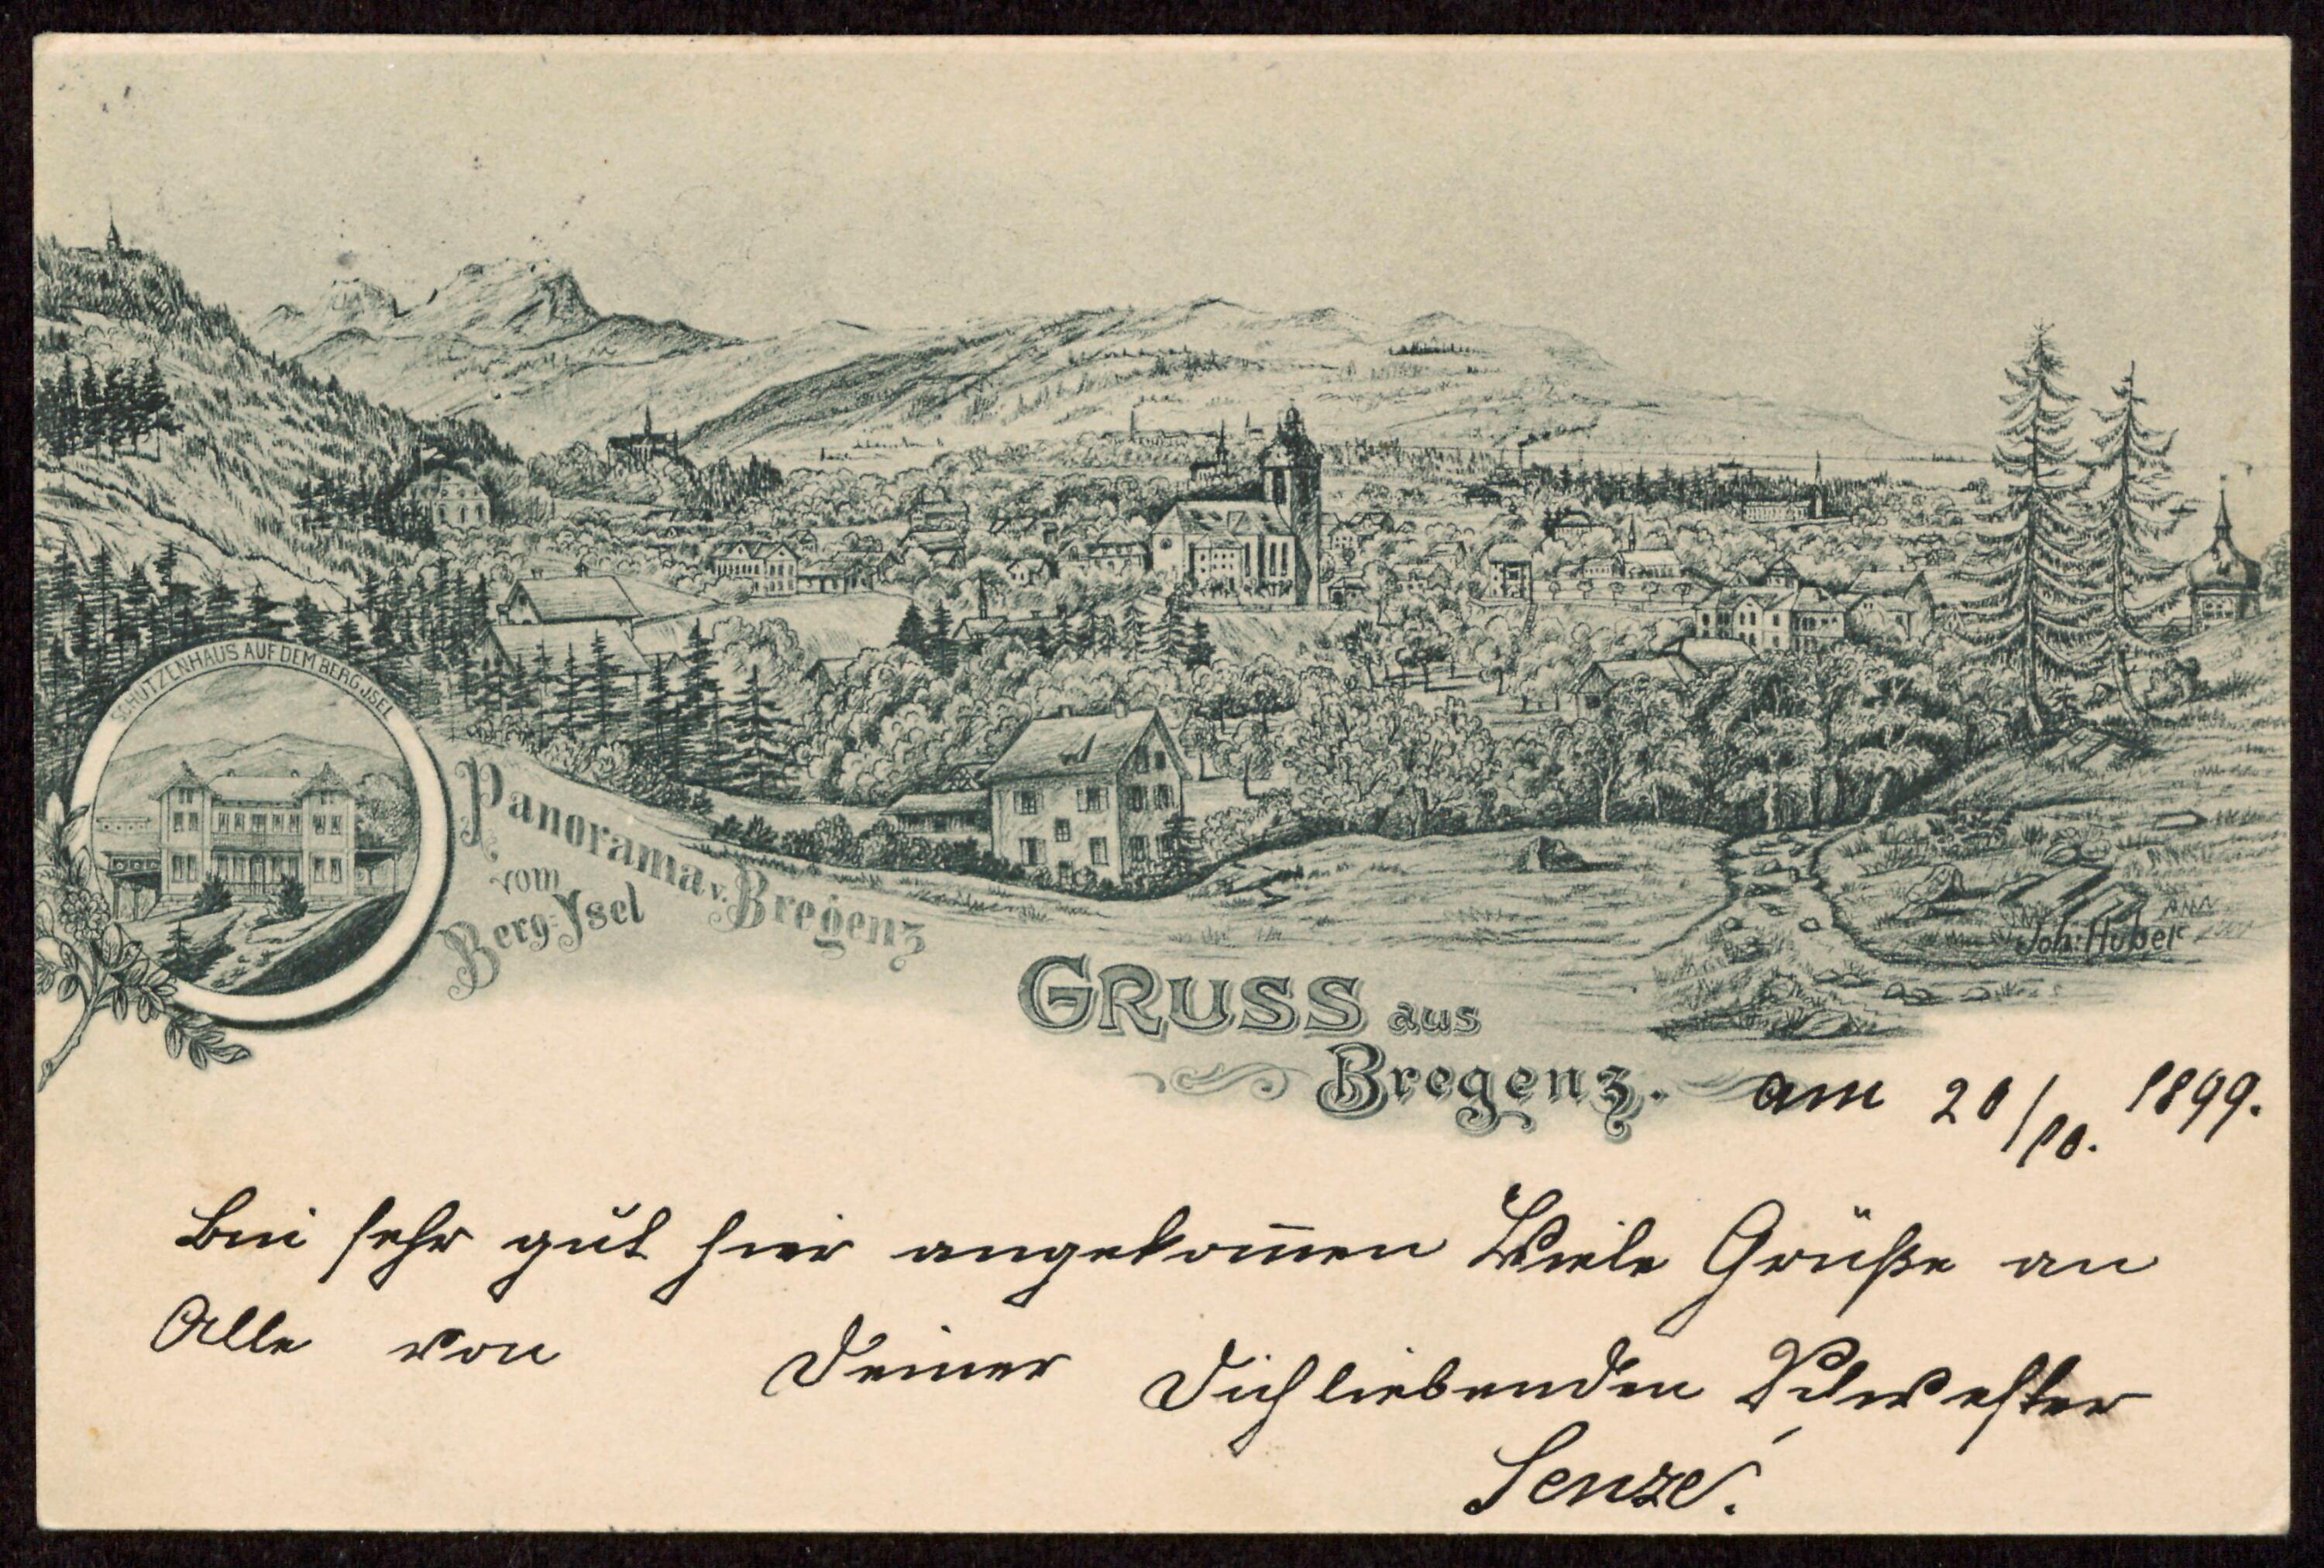 SCHÜTZENHAUS AUF DEM BERG JSEL
Panorama v. Bregenz
vom
Berg-Ysel
Joh. Huber
GRUSS aus
Bregenz.
am 20/10. 1899.
Bin sehr gut hier angekom̄en Viele Grüße an
Alle von Deiner Dich liebenden Schwester